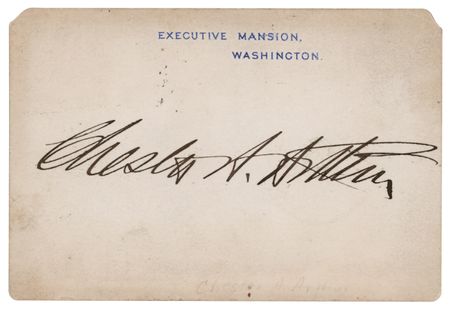 EXECUTIVE MANSION,
WASHINGTON.
Chester A. Arthur
Chester A. Arthur